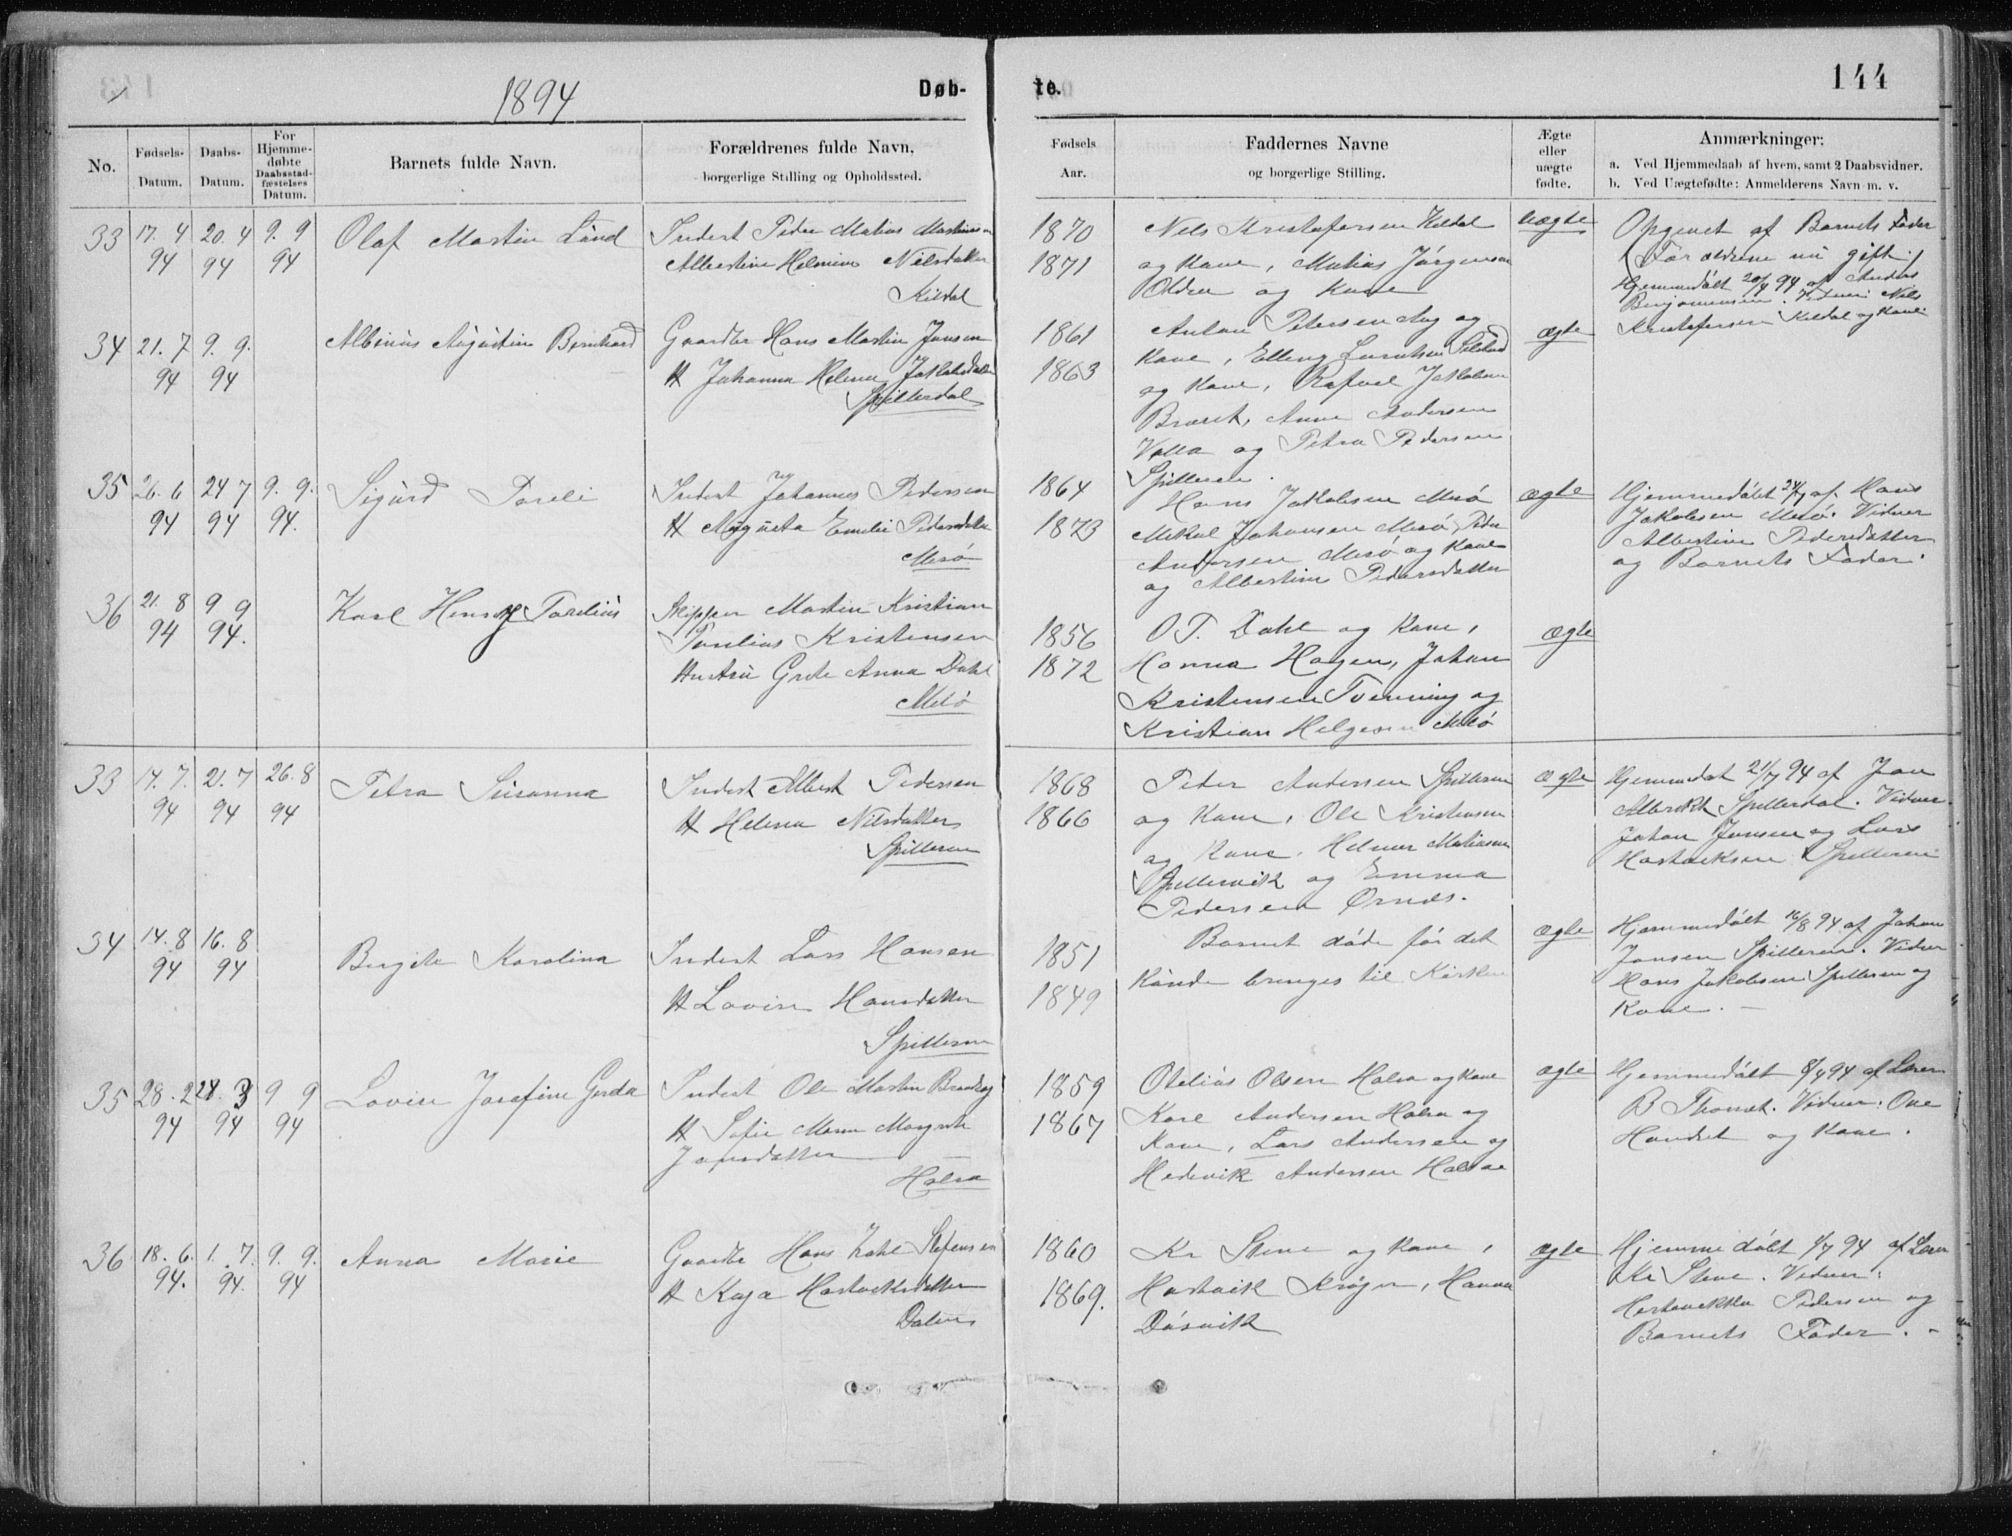 1894
Døb-
te.
144
No.
Fødsels-
Datum.
Daabs-
Datum.
For
Hjemme-
døbte
Daabsstad-
fæstelses
Datum.
Barnets fulde Navn.
Forældrenes fulde Navn,
borgerlige Stilling og Opholdssted.
Fødsels
Aar.
Faddernes Navne
og borgerlige Stilling.
Ægte
eller
uægte
fødte.
Anmærkninger:
a. Ved Hjemmedaab af hvem, samt 2 Daabsvidner.
b. Ved Uægtefødte: Anmelderens Navn m. v.
33
17. 4
94
20. 4
94
9. 9
94
Olaf Martin Lund
Inderst Peder Matias
Albertine Nilsdatter
Kildal
1870
1871
Nels Kristofersen Kildal
og Kone, Matias Jørgensen
og Kone
uægte
Opgivet af Barnets Fader
Forældrene nu gift.
Hjemmedøbt 20/4 94 af Anders
Benjaminsen. Vidner Nils
Kristofersen Kildal og Kone.
34
21. 7
94
9. 9.
94
Albinus Augustin Bernhard
Gaardbr Hans Martin Jonsen
H Johanna Helena Jakobsdatter
Spilderdal
1861
1863
Anton Petersen Aag og
Kone, Elling
og Kone, Rafael Jakobsen
Braset, Anne Andersen
Valla og Petra Pedersen
Spilleren.
ægte
35
26. 6
94
24 7
94
9. 9.
94.
Sigurd Toreli
Inderst Johannes Pedersen
H Augusta Emilie Pedersdatter
Mesø
1864
1873
Hans Jakobsen Mesø
Mikal Johansen Mesø, Peder
Andersen Mesø og Kone
og Albertine Pedersdatter
ægte
Hjemmedøbt 24/7 af Hans
Jakobsen Mesø. Vidner
Albertine Pedersdatter
og Barnets Fader.
36
21. 8
94
9 9
94.
Karl Henry Torelius
Skipper Martin Kristian
Torelius Kristensen
Hustru Grete Anna Dahl
Mesø
1856
1872
O T. Dahl og Kone,
Hanna Hagen, Johan
Kristensen Tverning og
Kristian Helgesen Mesø
ægte
33
14. 7.
94
21. 7
94
26. 8
94
Petra Susanna
Inderst Albert Pedersen
H Helena Nilsdatter
Spilleren
1868
1866
Peder Andersen Spilleren
og Kone, Ole Kristensen
og Kone, Helmer Matiasen
Spillervik og Emma
Pedersen Ørnes.
ægte
Hjemmedøbt 21/7 94 af Jon
Albrikt Spillerdal. Vidner
Johan Jonsen og Lars
Hartviksen Spilleren
34
14. 8
94
16. 8
94
Birgite Karolina
Inderst Lars Hansen
H Lovise Hansdatter
Spilleren
1851
1849
Barnet døde før det
kunde bringes til Kirken
ægte
Hjemmedøbt 16/8 94 af Johan
Jonsen Spilleren. Vidner
Hans Jakobsen Spilleren og
Kone. –
35
28. 2
94
28. 3
94
9 9
94
Lovise Josefine Gerda
Inderst Ole Martin
H Sofie Marie Margrete
Jonsdatter
Halsa
1859
1867
Otelius Olsen Halsa og Kone
Karl Andersen Halsa og
Kone, Lars Andersen og
Hedevik Andersen Halsa
ægte
Hjemmedøbt 8/4 94 af Lærer
B Vidner: Ove
og Kone.
36
18. 6.
94.
1. 7.
94.
9. 9.
94
Anna Marie
Gaardbr Hans Zahl Stefensen
H Kaja Hartviksdatter
Dalen
1860
1869.
Kr Stene og Kone,
Hartvik Krøger, Hanna
Døsvik
ægte
Hjemmedøbt 1/7 94 af Lærer
Kr Stene. Vidner:
Pedersen og
Barnets Fader. –